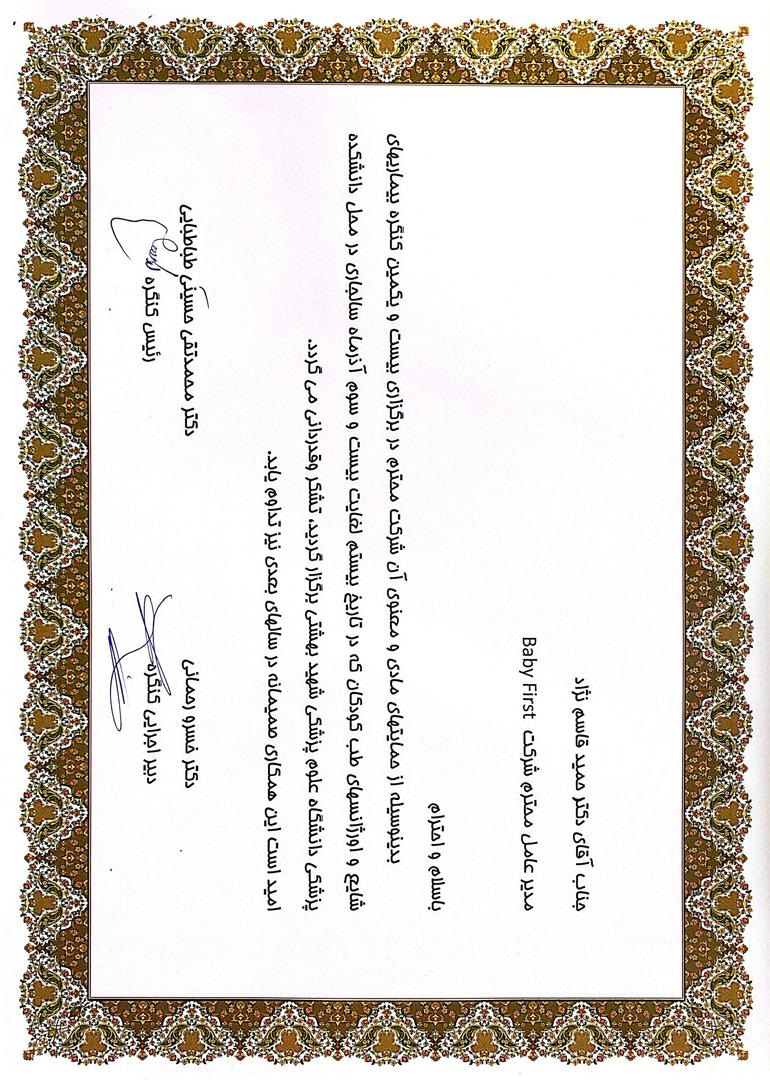 جناب آقای دکتر حمید قاسم نژاد
مدیر عامل محترم شرکت Baby First
باسلام و احترام
بدینوسیله از حمایتهای مادی و معنوی آن شرکت محترم در برگزاری بیست و یکمین کنگره بیماریهای
شایع و اورژانسهای طب کودکان که در تاریخ بیستم لغایت بیست و سوم آذرماه سالجاری در محل دانشکده
پزشکی دانشگاه علوم پزشکی شهید بهشتی برگزار گردید، تشکر وقدردانی می گردد.
امید است این همکاری صمیمانه در سالهای بعدی نیز تداوم یابد.
دکتر خسرو رحمانی
دبیر اجرایی کنگره
دکتر محمدتقی حسینی طباطبایی
رئیس کنگره